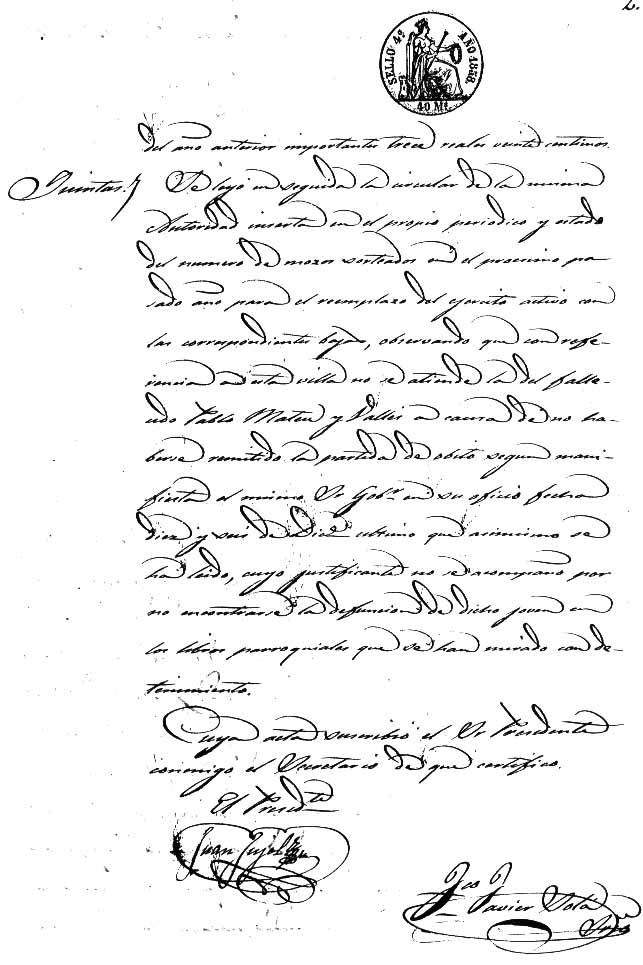 2.
SELLO 4º AÑO 1858.
40 Ms.
del año anterior importantes trece reales veinte centimos.
Quintas. Se leyó en seguida la circular de la misma
Autoridad inserta en el propio periodico y estado
del numero de mozos sorteados en el procsimo pa-
sado año para el reemplazo del ejercito activo con
las correspondientes bajas, observando que con refe-
rencia a esta villa no se atiende la del falle-
cido Pablo Mateu y Valles a causa de no ha-
berse remitido la partida de obito segun mani-
fiesta el mismo Sr Gobr en su oficio fecha
diez y seis de Dice ultimo que asimismo se
ha leido, cuyo justificante no se acompaño por
no encontrarse la defuncion de dicho joven en
los libros parroquiales que se han mirado con de-
tenimiento.
Cuya acta suscribió el Sr Presidente
conmigo el Secretario de que certifico.
El Presidte
Juan Pujol
Javier Solá
Srio